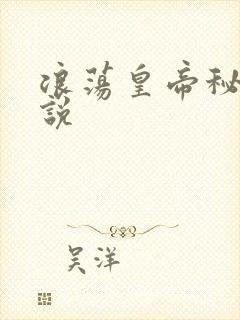 浪蕩皇帝秘
說
吴洋